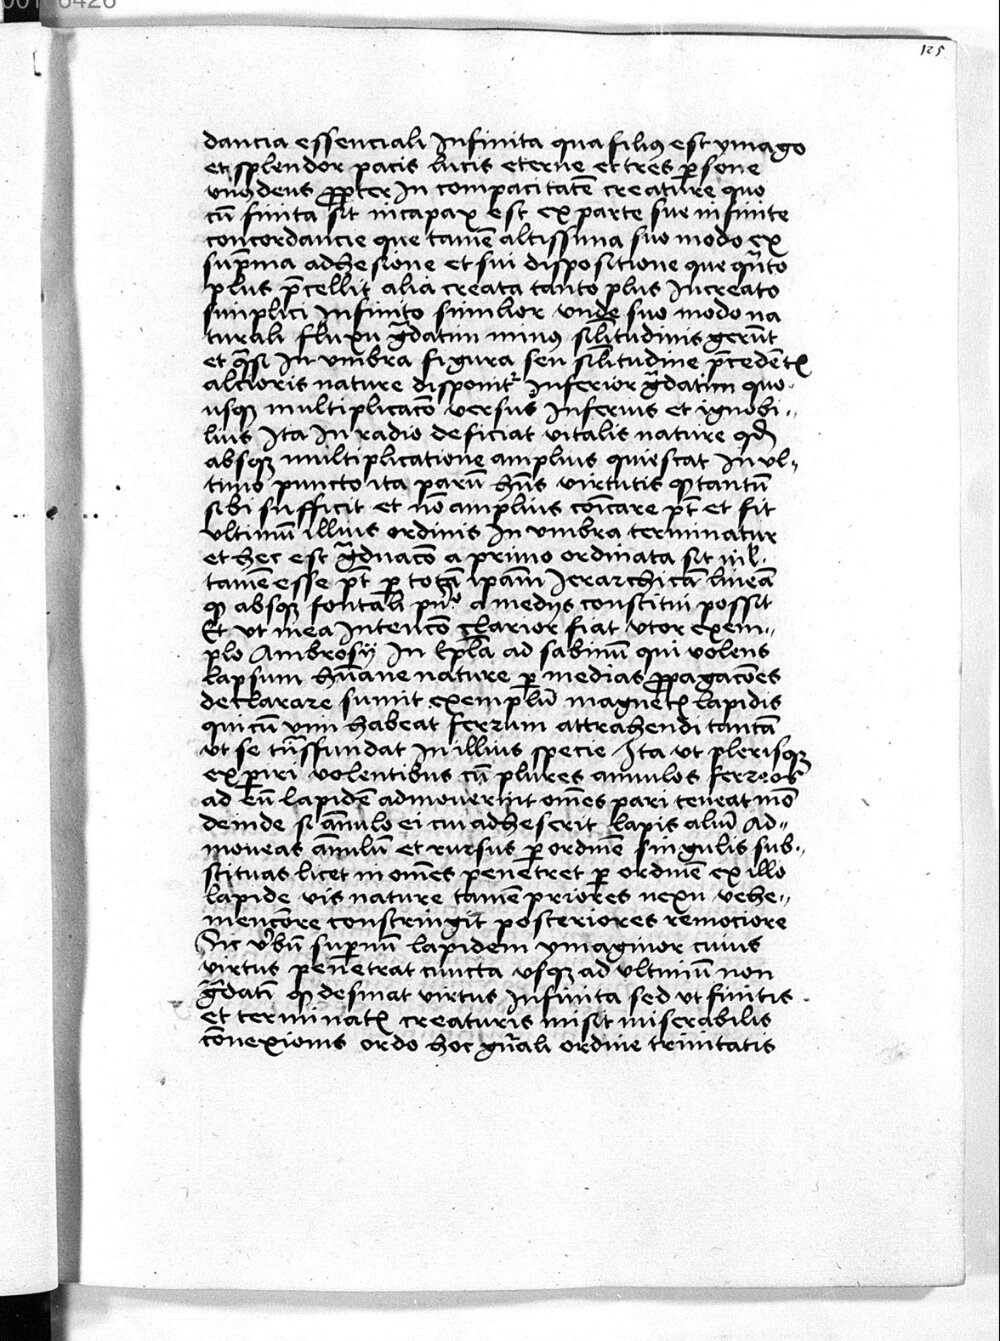 125
dancia essenciali Infinita qua filius est ymago
et splendor pacis lucis eterne et tres p̄sone
vnus deus propter In compacitatē creature quo
cū finita sit incapax est ex parte sue infinite
concordancie que tamē altissima suo modo ex
sup̄ma adhesione et sui dispositione que qn̄to
plus p̄cellit alia creata tanto plus Increato
simplici Infinito similior vnde suo modo na
turali fluxu gͣdatim minus silitudinis gerūt
et qͣsi In vmbra figura seu silitudine p̄cedētis
alcioris nature disponitͬ Inferior gͣdatim quo-
usqꝫ multiplicacō versus Inferius et ignobi-
lius Ita In radio deficiat vitalis nature qd̄
absqꝫ multiplicatione amplius quiescat In vl-
timo puncto ita parū hn̄s virtutis qꝫ tantū
sibi sufficit et nō amplius cōicare pt̄ et sit
vltimū illius ordinis In vmbra terminatur
et hec est gͣduacō a primo ordinata sit nil
tamē esse pt̄ p̄ totā ipam̄ Ierarchicā lineā
qꝫ absqꝫ fontali pn̄ᵒ a medijs constitui possit
Et vt mea Intencō clarior fiat vtor exem-
plo Ambrosij In Epl̄a ad sabinū qui volens
lapsum hūane nature p̄ medias propagacōes
declarare sumit exemplū magnetis lapidis
qui cū vim habeat ferrum attrahendi tantā
vt se trāsfundat In illius specie Ita vt plerisqꝫ
experiri volentibus cū plures annulos ferreos
ad eū lapidē admouerint om̄es pari teneat mō
deinde si ānulo ei cui adheserit lapis aliū Ad-
moueas ānulū et rursus p̄ ordinē singulis sub-
stituas licet in om̄es penetret p̄ ordinē ex illo
lapide vis nature tamē priores nexu vehe-
menciore constringit posteriores remociore
Sic v̄bū sup̄nū lapidem ymaginor cuius
virtus penetrat cuncta vsqꝫ ad vltimū non
gͣdatī qꝫ desinat virtus Infinita sed vt finitis
et terminatis creaturis misit miserabilis
cōnexionis ordo hoc gn̄ali ordine trinitatis